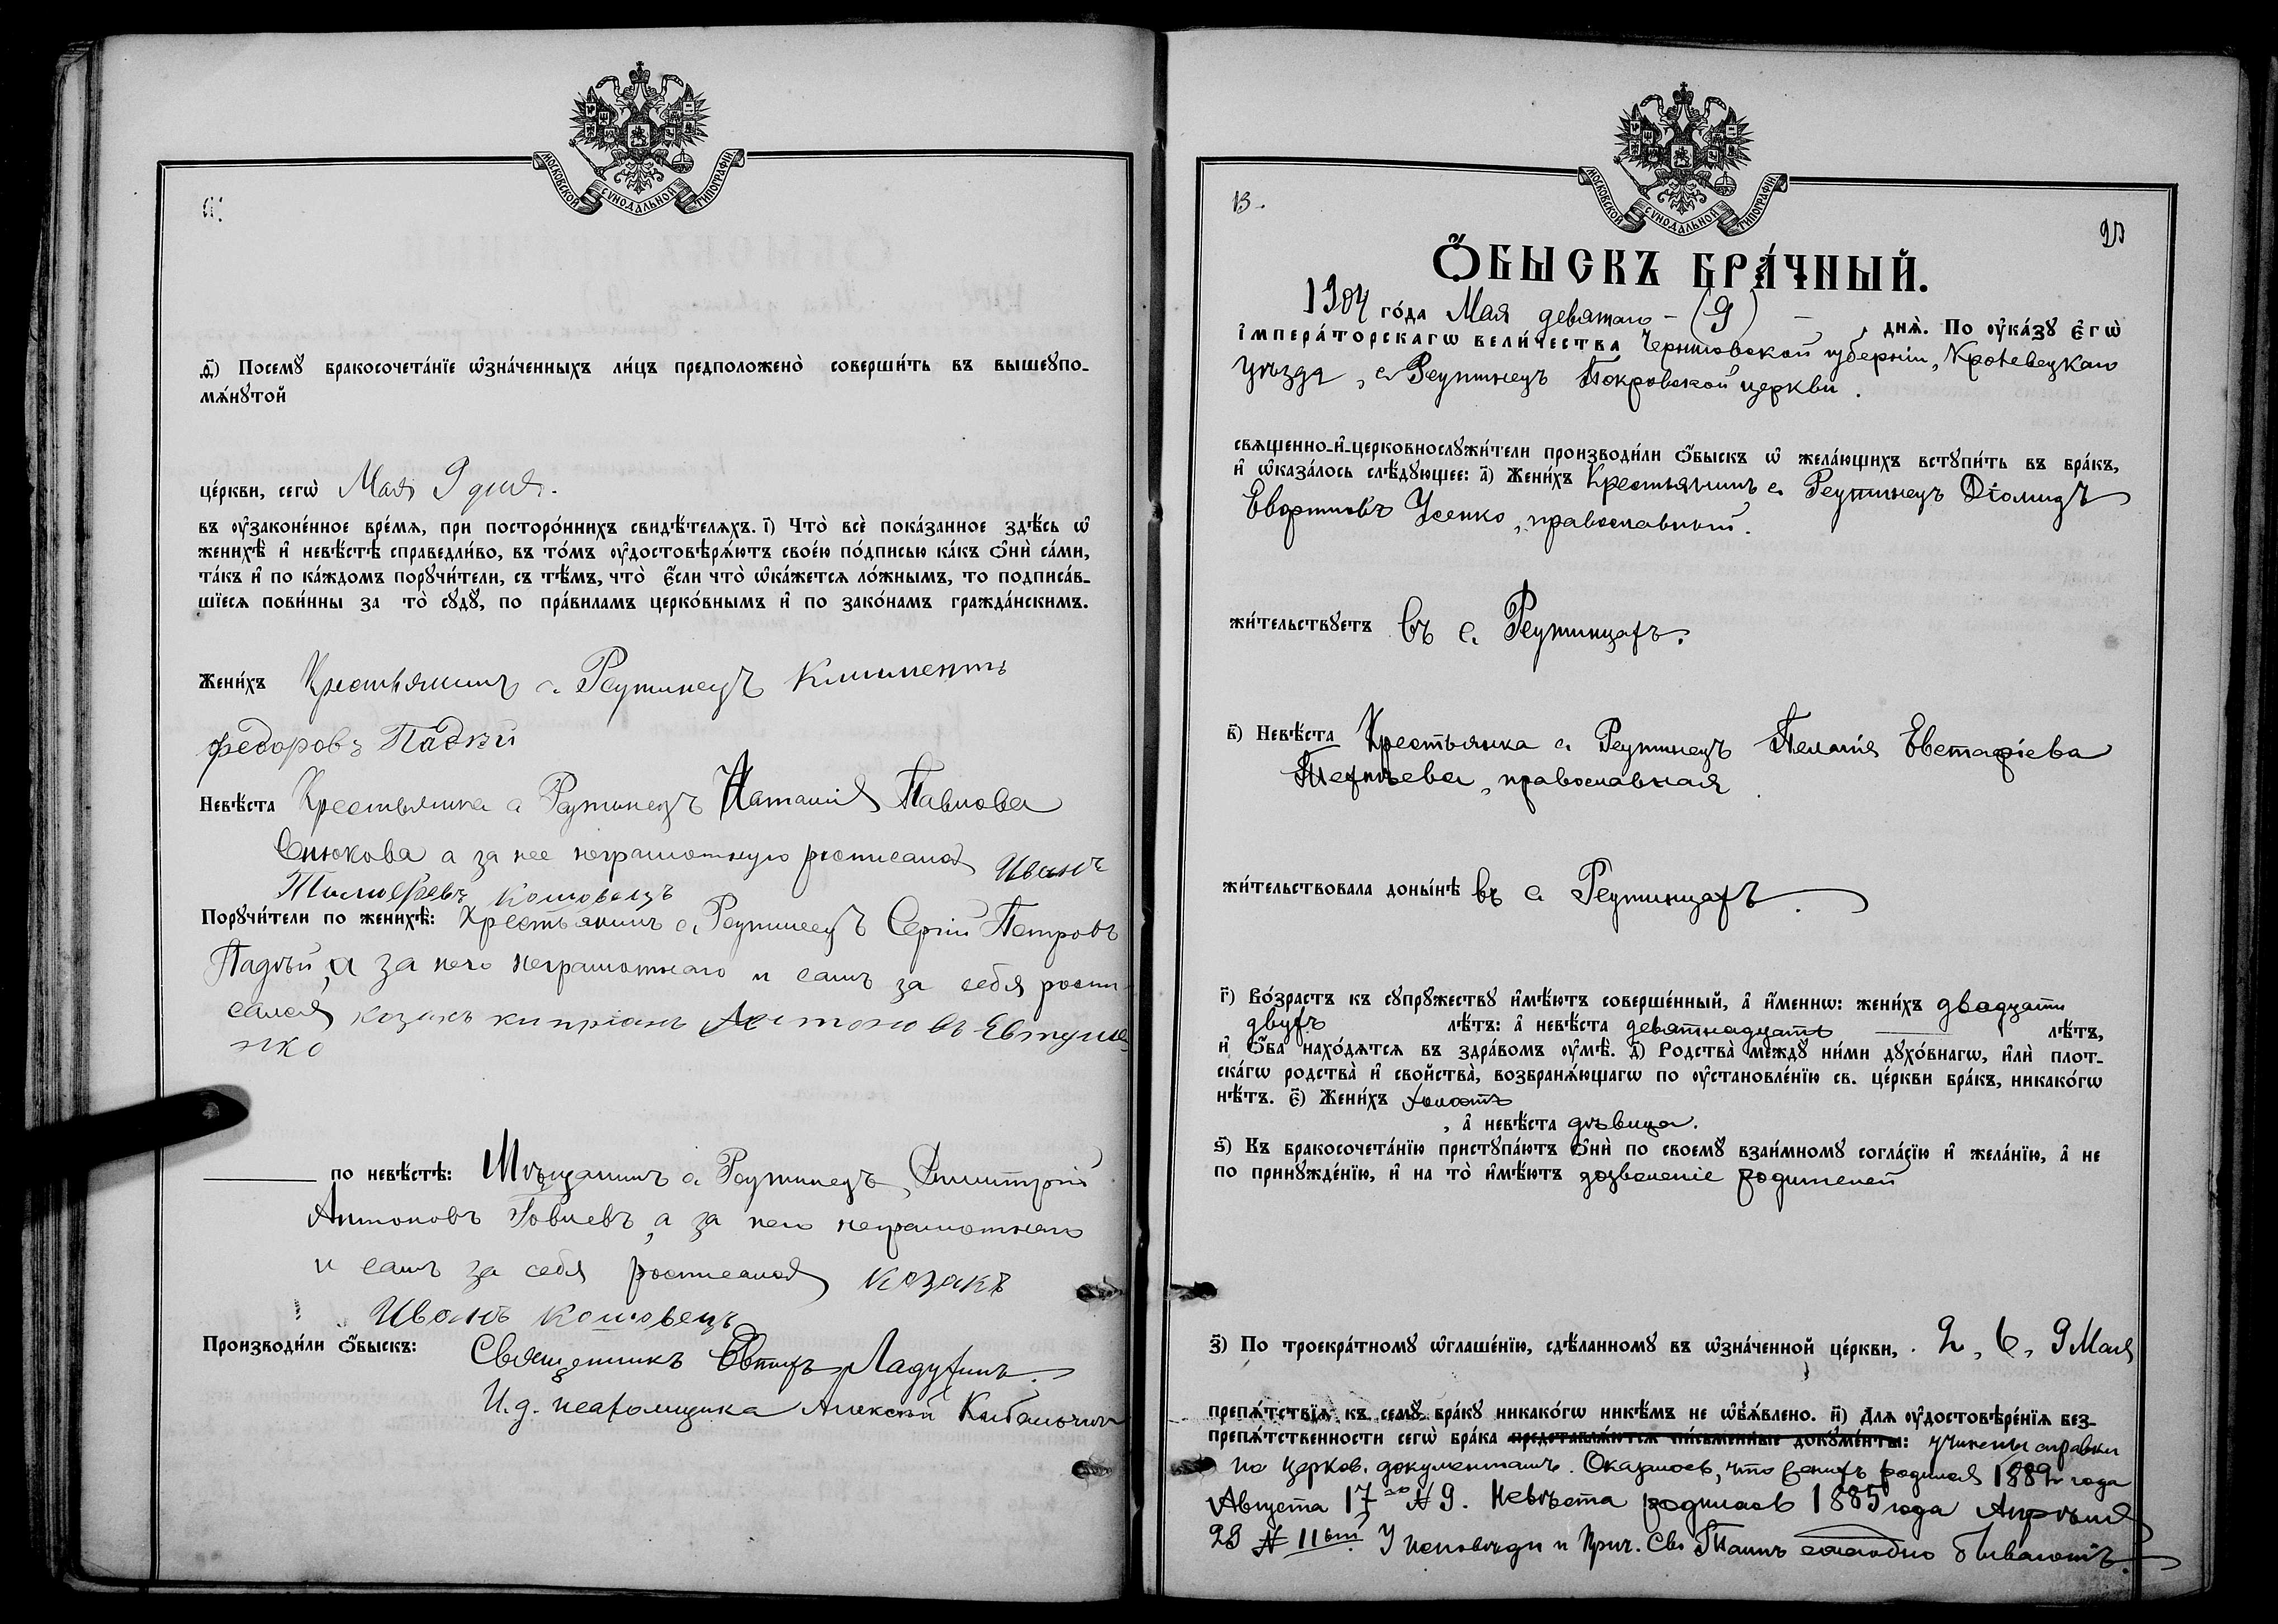 МОСКОВСКОЙ СѴНОДАЛЬНОЙ ТИПОГРАФІИ.
ѳ҃) Посемꙋ̀ бракосочета́нїе ѡ҆зна́ченныхъ ли́цъ предположено̀ соверши́ть въ вышеꙋпо-
мѧ́нꙋтой
це́ркви, сегѡ̀ Мая 9 дня.
въ ᲂу҆законе́нное вре́мѧ, при посторо́ннихъ свидѣ́телѧхъ. і҃) Что̀ всѐ пока́занное здѣ́сь ѡ҆
женихѣ̀ и҆ невѣ́стѣ справедли́во, въ то́мъ ᲂу҆достовѣрѧ́ютъ свое́ю по́дписью ка́къ ѻ҆нѝ са́ми,
та́къ и҆ по ка́ждомъ порꙋчи́тели, съ тѣ́мъ, что̀ є҆́сли что̀ ѡ҆ка́жетсѧ ло́жнымъ, то подписа́в-
шїесѧ пови́нны за то̀ сꙋдꙋ̀, по пра́виламъ церко́внымъ и҆ по зако́намъ гражда́нскимъ.
Жени́хъ Крестьянинъ с. Реутинецъ Климентъ
Федоровъ Падзй
Невѣ́ста Крестьянка с Реутинецъ Наталія Павлова
Снюкова а за нее неграмотную росписался Иванъ
Тимофеевъ Кошовецъ
Порꙋчи́тели по женихѣ̀: Крестьянинъ с. Реутинецъ Сергій Петровъ
Падзей, а за него неграмотнаго и самъ за себя роспи-
сался козакъ Кипріанъ Антоновъ Евтуше
нко
по невѣ́стѣ: Мѣщанинъ с. Реутинецъ Дмитрій
Антоновъ Говлевъ, а за него неграмотнаго
и самъ за себя росписался козакъ
Иванъ Кошовецъ
Производи́ли ѻ҆́быскъ: Священникъ Евтихъ Ладухинъ.
И. д. псаломщика Алексѣй Кибальчичъ
МОСКОВСКОЙ СѴНОДАЛЬНОЙ ТИПОГРАФІИ.
13.
Ѻ҆́БЫСКЪ БРА́ЧНЫЙ.
1904 го́да Мая девятаго - (9) - днѧ̀. По ᲂу҆ка́зꙋ є҆гѡ̀
і҆мпера́торскагѡ вели́чества Черниговской губерніи, Кролевецкаго
уѣзда, с. Реутинецъ Покровской церкви.
свѧщенно-и҆-церковнослꙋжи́тели производи́ли ѻ҆́быскъ ѡ҆ жела́ющихъ встꙋпи́ть въ бра́къ,
и҆ ѡ҆каза́лось слѣ́дꙋющее: а҃) Жени́хъ Крестьянинъ с. Реутинецъ Діомидъ
Евфтиовъ Усенко, православный.
жи́тельствꙋетъ въ с. Реутинцахъ.
в҃) Невѣ́ста Крестьянка с. Реутинецъ Пелагія Евстафіева
православная
жи́тельствовала доны́нѣ въ с Реутинцахъ.
г҃) Во́зрастъ къ сꙋпрꙋ́жествꙋ и҆мѣ́ютъ соверше́нный, а҆ и҆́менно: жени́хъ двадцати
двухъ лѣ́тъ: а҆ невѣ́ста девятнадцать лѣ́тъ,
и҆ ѻ҆́ба нахо́дѧтсѧ въ здра́вомъ ᲂу҆мѣ̀. д҃) Родства̀ междꙋ̀ ни́ми дꙋхо́внагѡ, и҆лѝ плот-
ска́гѡ родства̀ и҆ свойства̀, возбранѧ́ющагѡ по ᲂу҆становле́нїю св. це́ркви бра́къ, никако́гѡ
нѣ́тъ. є҃) Жени́хъ холостъ
, а҆ невѣ́ста дѣвица.
ѕ҃) Къ бракосочета́нїю пристꙋпа́ютъ ѻ҆нѝ по своемꙋ̀ взаи́мномꙋ согла́сїю и҆ жела́нїю, а҆ не
по принꙋжде́нїю, и҆ на то̀ и҆мѣ́ютъ дозволеніе родителей
з҃) По троекра́тномꙋ ѡ҆глаше́нїю, сдѣ́ланномꙋ въ ѡ҆зна́ченной це́ркви, 2, 6, 9 Мая
препѧ́тствїѧ къ семꙋ̀ бра́кꙋ никако́гѡ никѣ́мъ не ѡ҆б̾ѧ́влено. и҃) Длѧ ᲂу҆достовѣре́нїѧ без-
препѧ́тственности сегѡ̀ бра́ка представлѧ́ютсѧ пи́сьменные докꙋме́нты: учинены справки
по церков. документамъ. Оказалось, что женихъ родился 188 года
Августа 17го № 9. Невѣста родилась 1885 года Апрѣля
28 № 11ый. У исповѣди и Прич. Св. Таинъ ежегодно бываютъ.